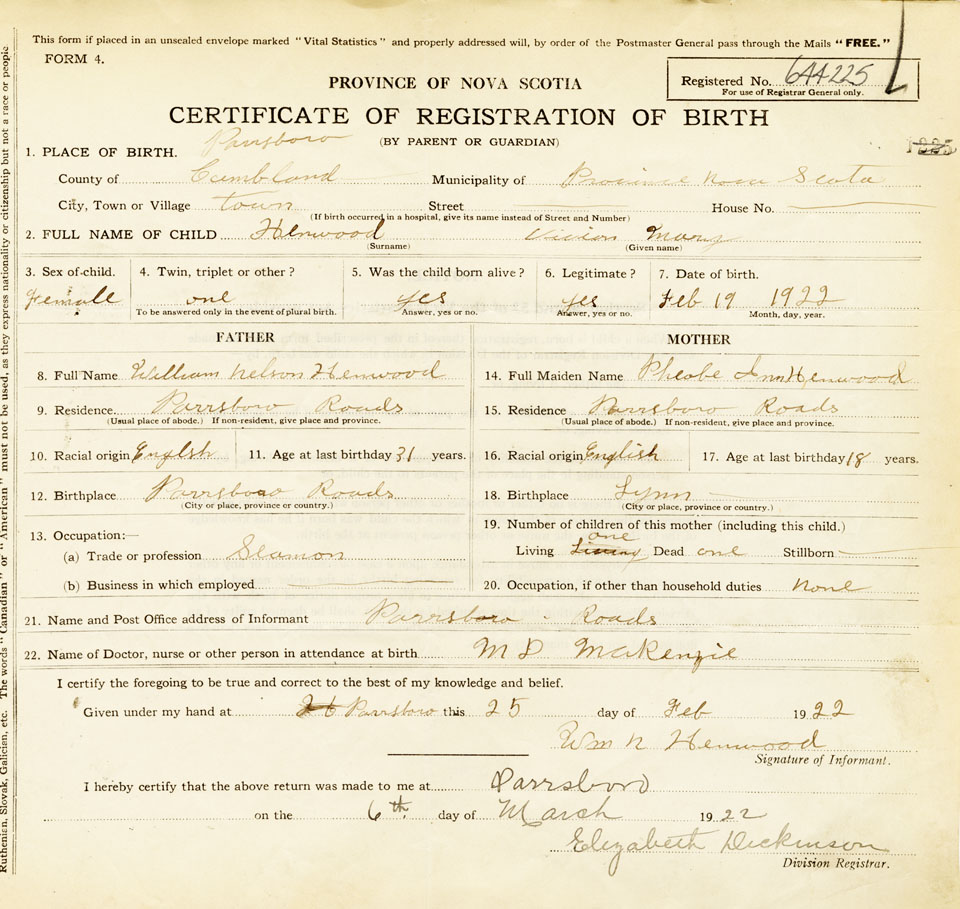 This form if placed in an unsealed envelope marked "Vital Statistics" and properly addressed will, by order of the Postmaster General pass through the Mails "FREE."
FORM 4.
PROVINCE OF NOVA SCOTIA
Registered No. 644225
For use of Registrar General only.
CERTIFICATE OF REGISTRATION OF BIRTH
(BY PARENT OR GUARDIAN)
1. PLACE OF BIRTH. Parrsboro
County of Cumbland Municipality of Province Nova Scota
City, Town or Village town Street House No.
(If birth occurred in a hospital, give its name instead of Street and Number)
2. FULL NAME OF CHILD Henwood Vivion Mary
(Surname) (Given name)
3. Sex of child. 4. Twin, triplet or other? 5. Was the child born alive? 6. Legitimate? 7. Date of birth.
Female one yes yes Feb 19 1922
To be answered only in the event of plural birth. Answer, yes or no. Answer, yes or no. Month, day, year.
FATHER
8. Full Name William Nelson Henwood
9. Residence. Parrsboro Roads
(Usual place of abode.) If non-resident, give place and province.
10. Racial origin English 11. Age at last birthday 31 years.
12. Birthplace Parrsboro Roads
(City or place, province or country.)
13. Occupation:—
(a) Trade or profession Seamon
(b) Business in which employed
MOTHER
14. Full Maiden Name Pheobe Ann Henwood
15. Residence Parrsboro Roads
(Usual place of abode.) If non-resident, give place and province.
16. Racial origin English 17. Age at last birthday 18 years.
18. Birthplace Lynn
(City or place, province or country.)
19. Number of children of this mother (including this child.)
one
Living Dead one Stillborn
20. Occupation, if other than household duties none
21. Name and Post Office address of Informant Parrsboro Roads
22. Name of Doctor, nurse or other person in attendance at birth M D MaKenzie
I certify the foregoing to be true and correct to the best of my knowledge and belief.
Given under my hand at Parrsboro this 25 day of Feb 1922
Wm N Henwood
Signature of Informant.
I hereby certify that the above return was made to me at Parrsboro
on the 6th day of March 1922
Elizabeth Dickinson
Division Registrar.
Ruthenian, Slovak, Galician, etc. The words "Canadian" or "American" must not be used, as they express nationality or citizenship but not a race or people